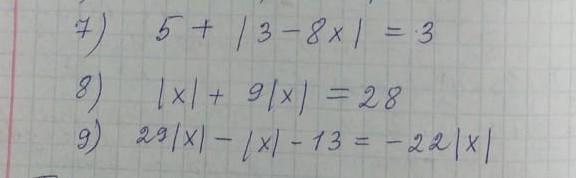 7) 5 + |3 - 8x| = 3
8) |x| + 9|x| = 28
9) 29|x| - |x| - 13 = -22|x|